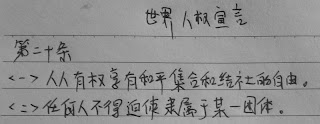 世界人权宣言
第二十条
<一> 人人有权享有和平集会和结社的自由。
<二> 任何人不得迫使隶属于某一团体。